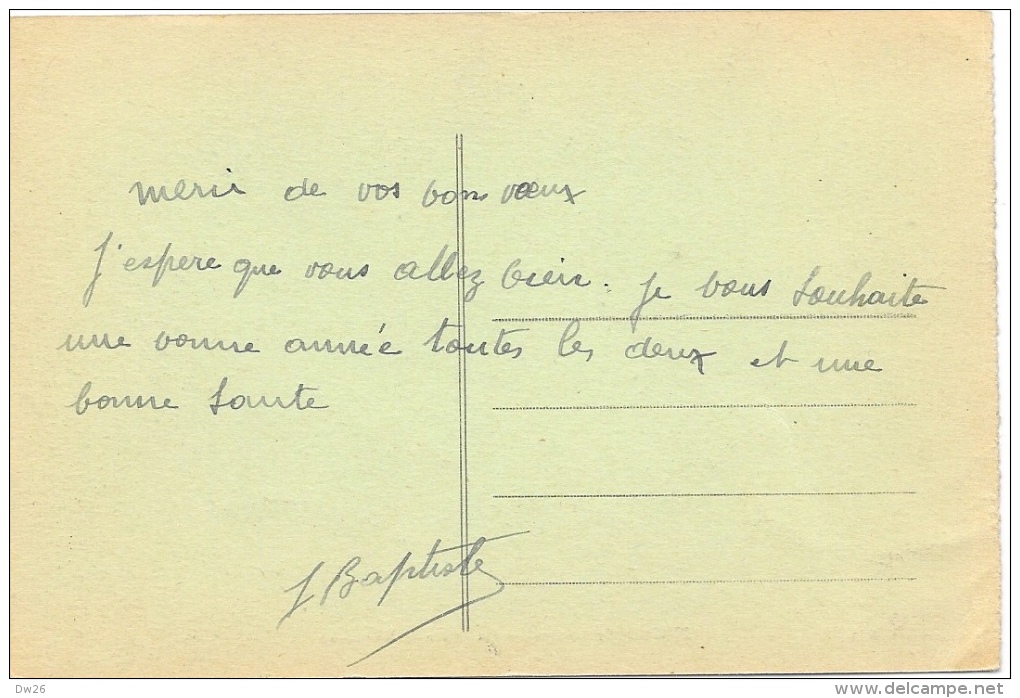 merci de vos bons vœux
J'espere que vous allez bien. je vous souhaite
une vonne année toutes les deux et une
bonne Sante
J. Baptiste
Dw26
delcampe.net